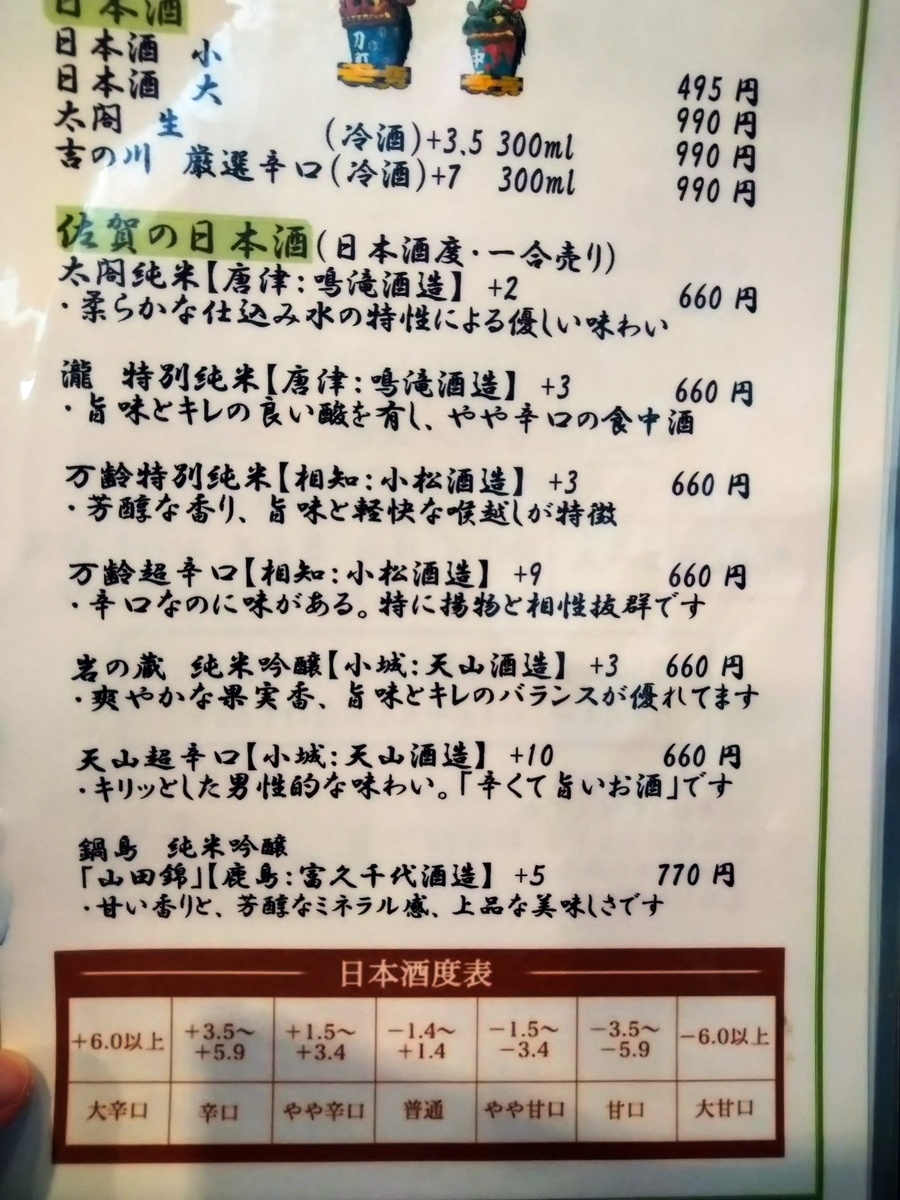 日本酒
日本酒 小 495円
日本酒 大 990円
太閤 生 (冷酒)+3.5 300ml 990円
吉の川 厳選辛口(冷酒)+7 300ml 990円
佐賀の日本酒(日本酒度・一合売り)
太閤純米【唐津:鳴滝酒造】 +2 660円
・柔らかな仕込み水の特性による優しい味わい
瀧 特別純米【唐津:鳴滝酒造】 +3 660円
・旨味とキレの良い酸を有し、やや辛口の食中酒
万齢特別純米【相知:小松酒造】 +3 660円
・芳醇な香り、旨味と軽快な喉越しが特徴
万齢超辛口【相知:小松酒造】 +9 660円
・辛口なのに味がある。特に揚物と相性抜群です
岩の蔵 純米吟醸【小城:天山酒造】 +3 660円
・爽やかな果実香、旨味とキレのバランスが優れてます
天山超辛口【小城:天山酒造】 +10 660円
・キリッとした男性的な味わい。「辛くて旨いお酒」です
鍋島 純米吟醸
「山田錦」【鹿島:富久千代酒造】 +5 770円
・甘い香りと、芳醇なミネラル感、上品な美味しさです
日本酒度表
+6.0以上 +3.5〜+5.9 +1.5〜+3.4 −1.4〜+1.4 −1.5〜−3.4 −3.5〜−5.9 −6.0以上
大辛口 辛口 やや辛口 普通 やや甘口 甘口 大甘口